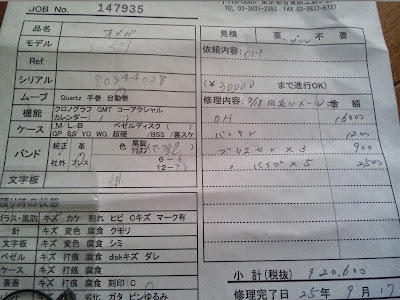 JOB No. 147935
TEL 03-3831-2383 FAX 03-3837-6727
品名 オメガ
モデル
Ref.
シリアル 80344028
ムーブ Quartz 手巻 自動巻
機能 クロノグラフ GMT コーアクシャル
カレンダー(
ケース LM/L・B ベゼルディスク(
GP SS YG WG 超硬 /BSS /裏スケ
バンド 純正 革 色 尾錠
社外 ブレス 6－
12－
文字板
預り時の状態
ガラス・風防 キズ カケ 割れ ヒビ Cキズ マーク有
針 キズ 変色 腐食 クモリ
文字板 キズ 変色 腐食 シミ
ベゼル キズ 打痕 腐食 dskキズ ダレ
ケース キズ 打痕 腐食
裏蓋 キズ 打痕 腐食 刻印(C
劣化 ガタ ピンゆるみ
見積 要 不要
依頼内容: OH
(¥30000 まで進行OK)
修理内容: 金額
O.H 16000
パッキン 1200
×3 900
パイプ×5 2500
小計(税抜) ¥20,600
修理完了日 25年 9月17